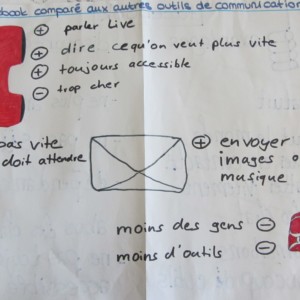 book comparé aux autres outils de communication
+ parler Live
+ dire ce qu'on veut plus vite
+ toujours accessible
- trop cher
pas vite
doit attendre
+ envoyer
images o
musique
moins des gens -
moins d'outils -